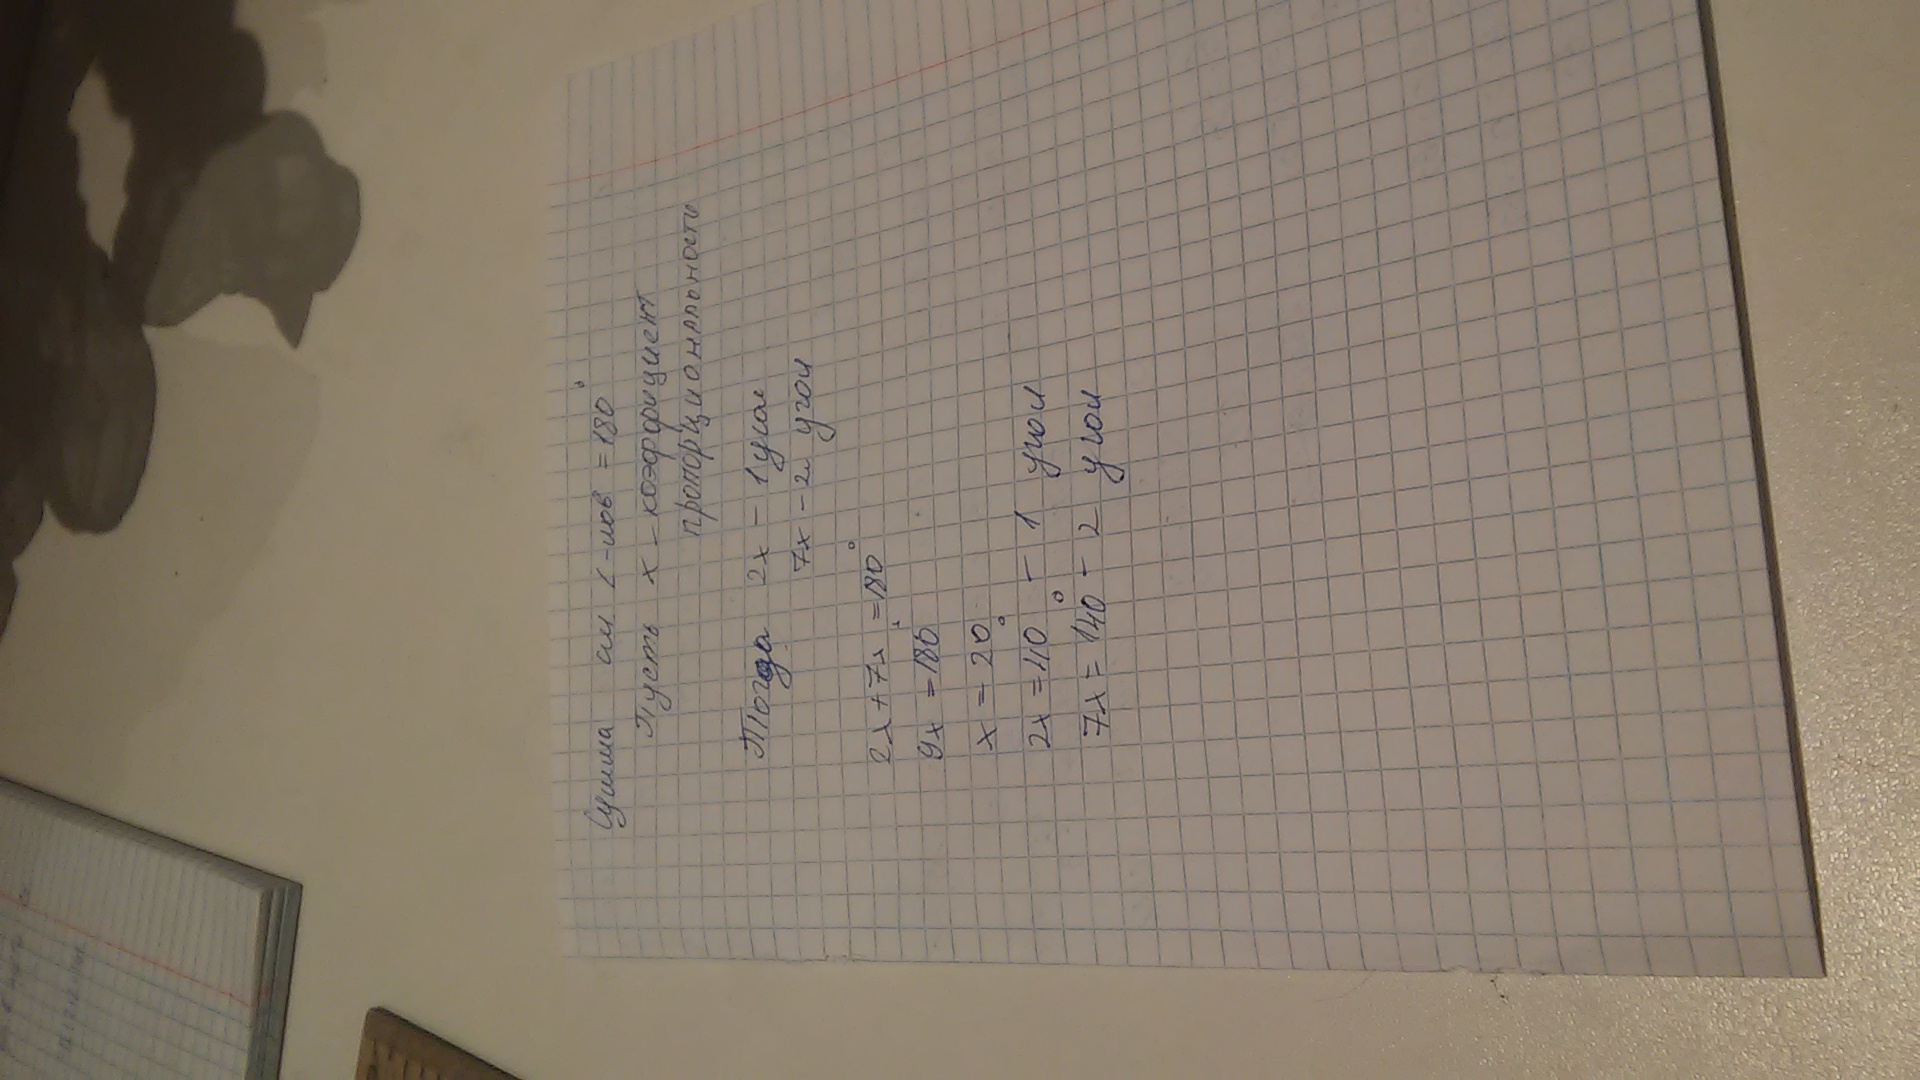 Сумма см <-лов = 180°
Пусть x - коэффициент
пропорциональности
Тогда 2x - 1 угол
7x - 2й угол
2x + 7x = 180°
9x = 180°
x = 20°
2x = 40° - 1 угол
7x = 140° - 2 угол